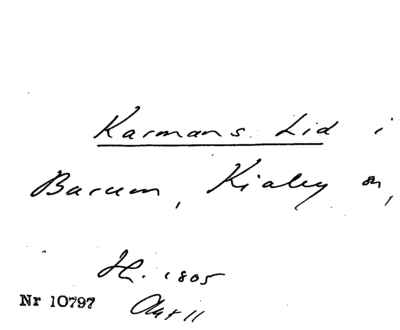 Karmans Lid i
Barum, Kiaby sn,
H. 1805
Nr 10797 Akt 11